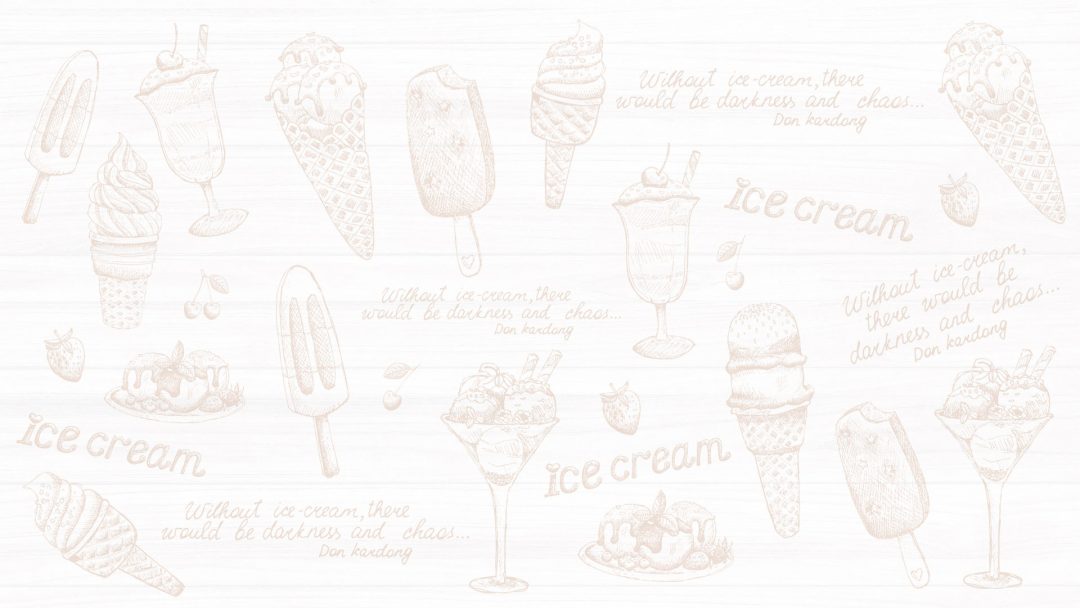 Without ice-cream, there
would be darkness and chaos...
Don kardong
ice cream
Without ice-cream,
there would be
darkness and chaos...
Don kardong
Without ice-cream, there
would be darkness and chaos...
Don kardong
ice cream
ice cream
Without ice-cream, there
would be darkness and chaos...
Don kardong